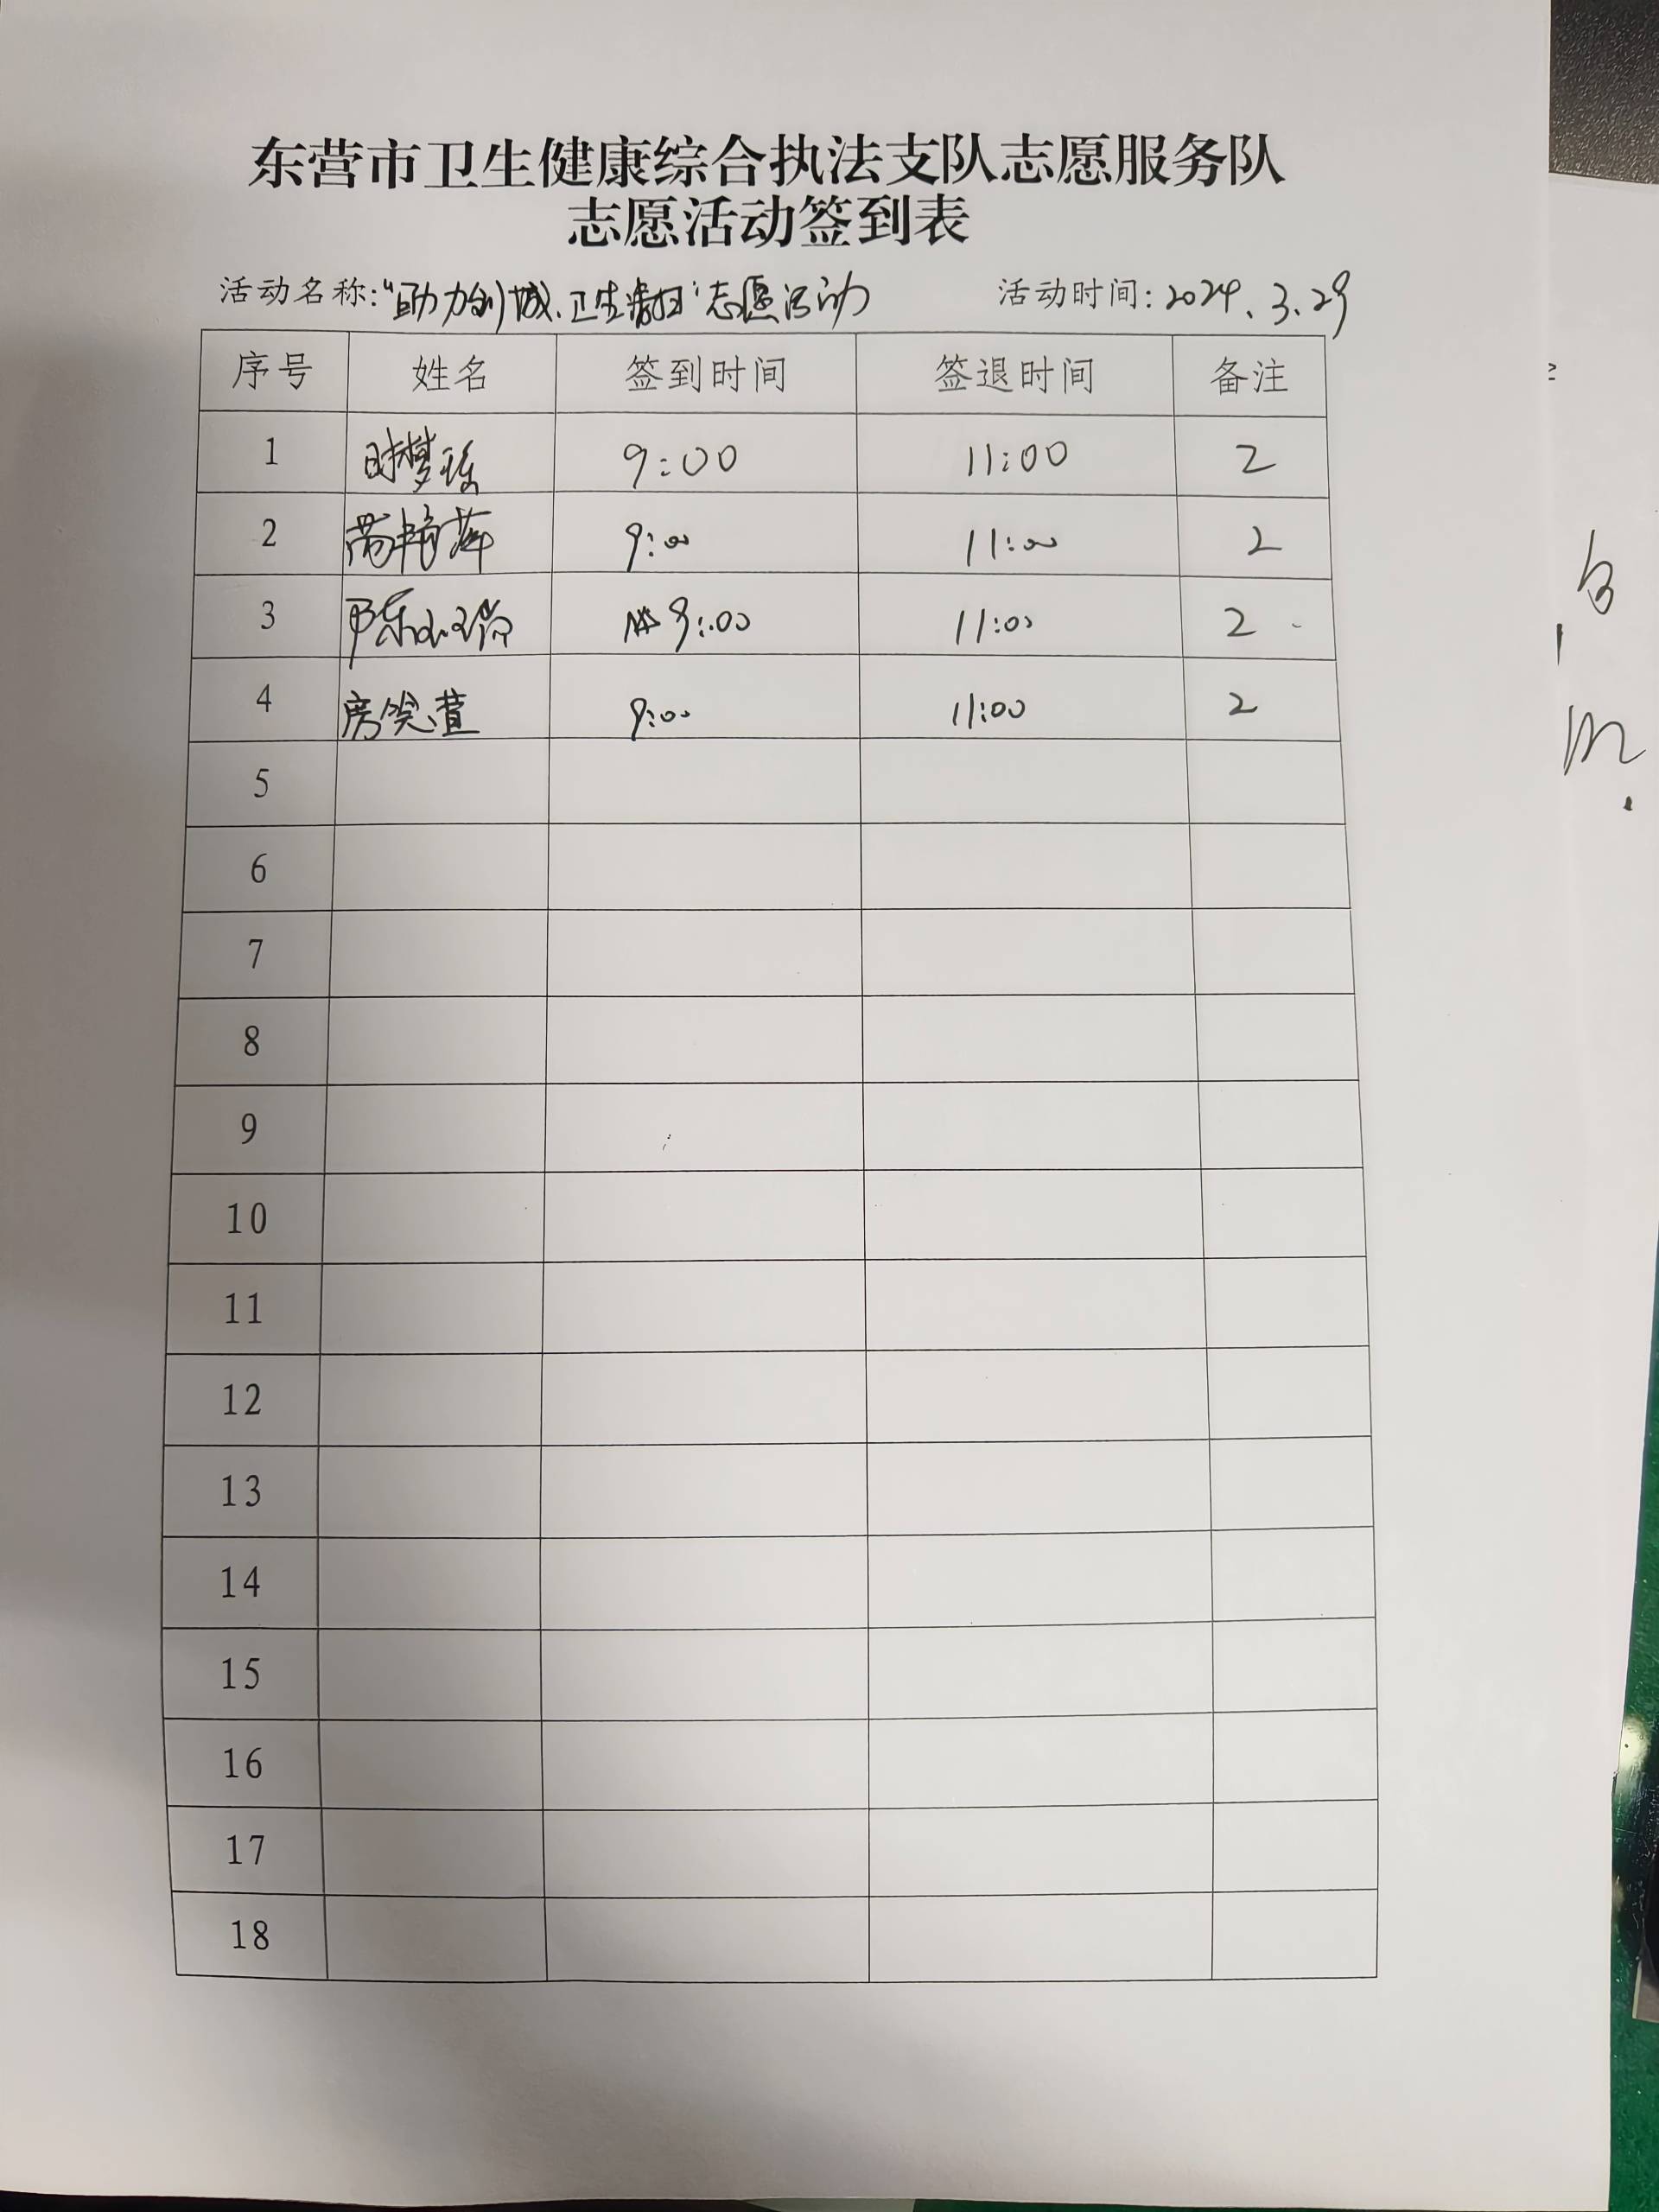 东营市卫生健康综合执法支队志愿服务队
志愿活动签到表
活动名称:“助力创城.卫生清扫”志愿活动 活动时间:2024.3.29
序号 姓名 签到时间 签退时间 备注
1 时梦瑶 9:00 11:00 2
2 9:00 11:00 2
3 9:00 11:00 2
4 房笑萱 9:00 11:00 2
5
6
7
8
9
10
11
12
13
14
15
16
17
18